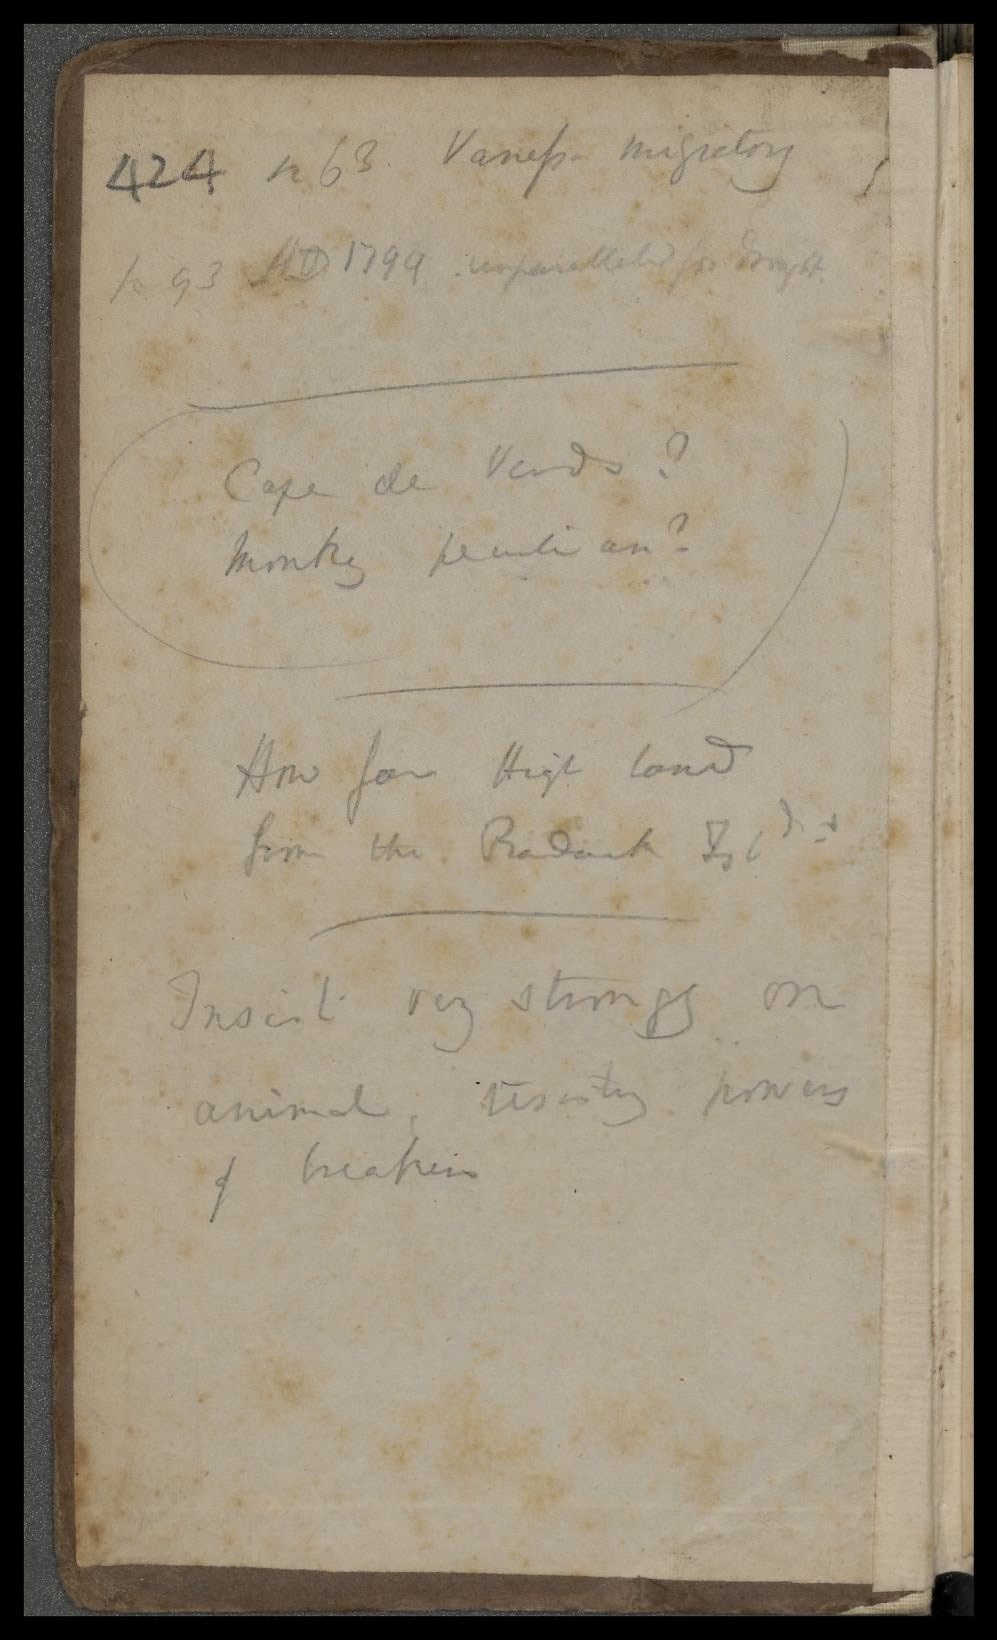 424 p 63. Vaness. migratory
p 93 AD 1799 unparalleled for drought
Cape de Verds?
Monkey peculiar?
How far High land
from the Radack Isld
Insist very strongly on
animal, powers
of breakers